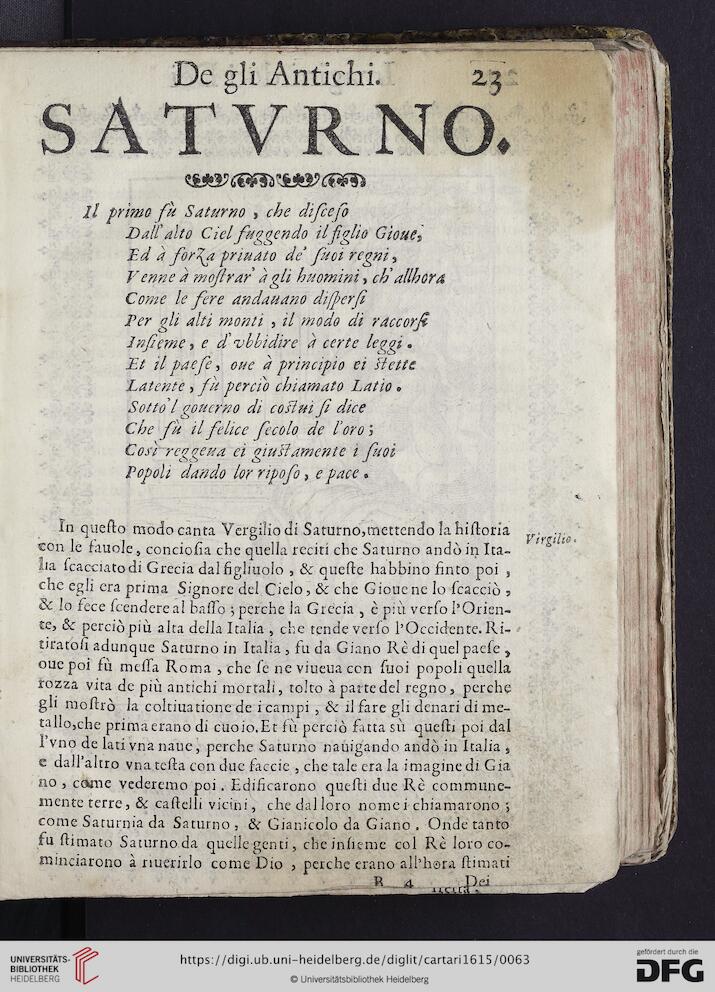 De gli Antichi. 23
SATVRNO.
Il primo fù Saturno, che disceso
Dall'alto Ciel fuggendo il figlio Gioue,
Ed à forza priuato de' suoi regni,
Venne à mostrar' à gli huomini, ch'allhora
Come le fere andauano dispersi
Per gli alti monti, il modo di raccorsi
Insieme, e d'vbbidire à certe leggi.
Et il paese, oue à principio ei stette
Latente, fù perciò chiamato Latio.
Sotto'l gouerno di costui si dice
Che fù il felice secolo de l'oro;
Così reggeua ei giustamente i suoi
Popoli dando lor riposo, e pace.
In questo modo canta Vergilio di Saturno, mettendo la historia
con le fauole, conciosia che quella reciti che Saturno andò in Ita-
lia scacciato di Grecia dal figliuolo, & queste habbino finto poi,
che egli era prima Signore del Cielo, & che Gioue ne lo scacciò,
& lo fece scendere al basso; perche la Grecia, è più verso l'Orien-
te, & perciò più alta della Italia, che tende verso l'Occidente. Ri-
tiratosi adunque Saturno in Italia, fu da Giano Rè di quel paese,
oue poi fù messa Roma, che se ne viueua con suoi popoli quella
rozza vita de più antichi mortali, tolto à parte del regno, perche
gli mostrò la coltiuatione de i campi, & il fare gli denari di me-
tallo, che prima erano di cuoio. Et fù perciò fatta sù questi poi dal
l'vno de lati vna naue, perche Saturno nauigando andò in Italia,
e dall'altro vna testa con due faccie, che tale era la imagine di Gia
no, come vederemo poi. Edificarono questi due Rè commune-
mente terre, & castelli vicini, che dal loro nome i chiamarono;
come Saturnia da Saturno, & Gianicolo da Giano. Onde tanto
fu stimato Saturno da quelle genti, che insieme col Rè loro co-
minciarono à riuerirlo come Dio, perche erano all'hora stimati
Virgilio.
B 4 Dei
UNIVERSITÄTS-
BIBLIOTHEK
HEIDELBERG
https://digi.ub.uni-heidelberg.de/diglit/cartari1615/0063
© Universitätsbibliothek Heidelberg
gefördert durch die
DFG